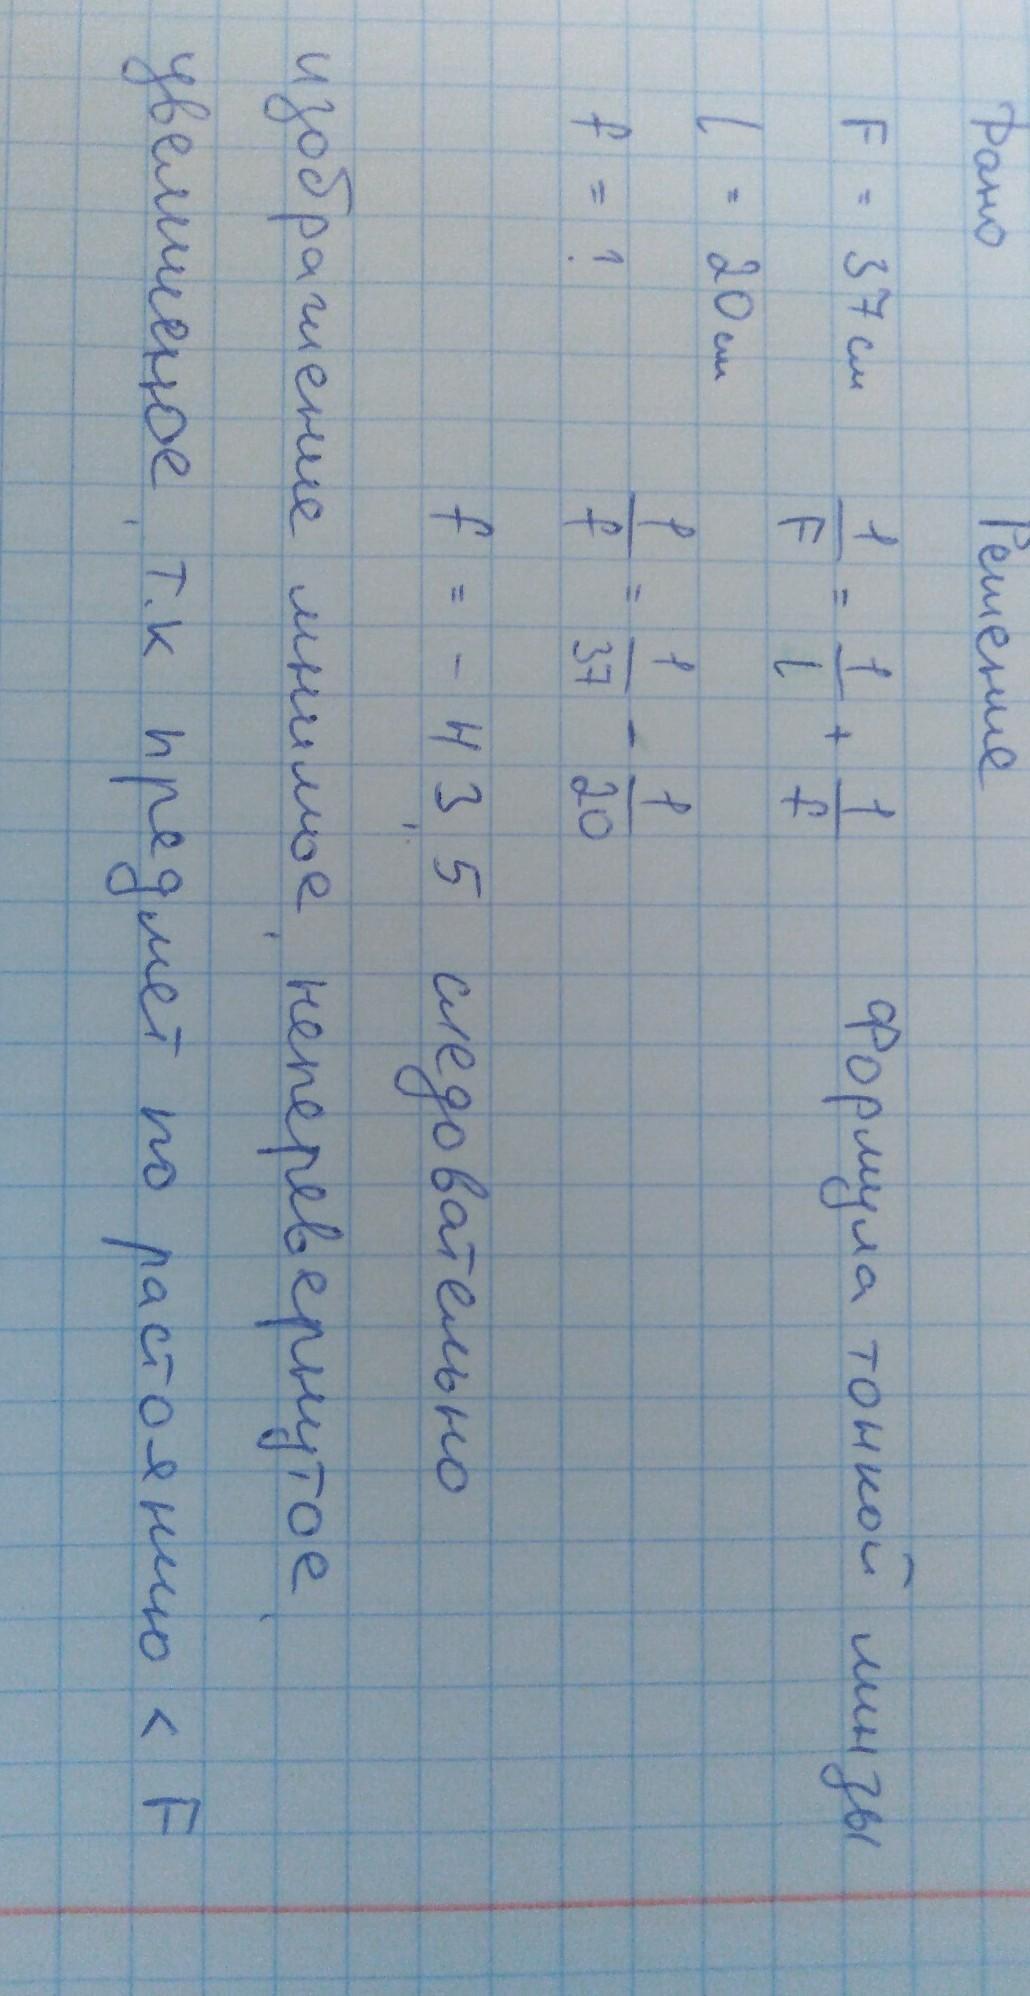 Дано Решение
F = 37 см 1/F = 1/l + 1/f Формула тонкой линзы
l = 20 см
f = ? 1/f = 1/37 - 1/20
f = - 43,5 следовательно
изображение мнимое, неперевернутое,
увеличенное, т.к предмет по растоянию < F